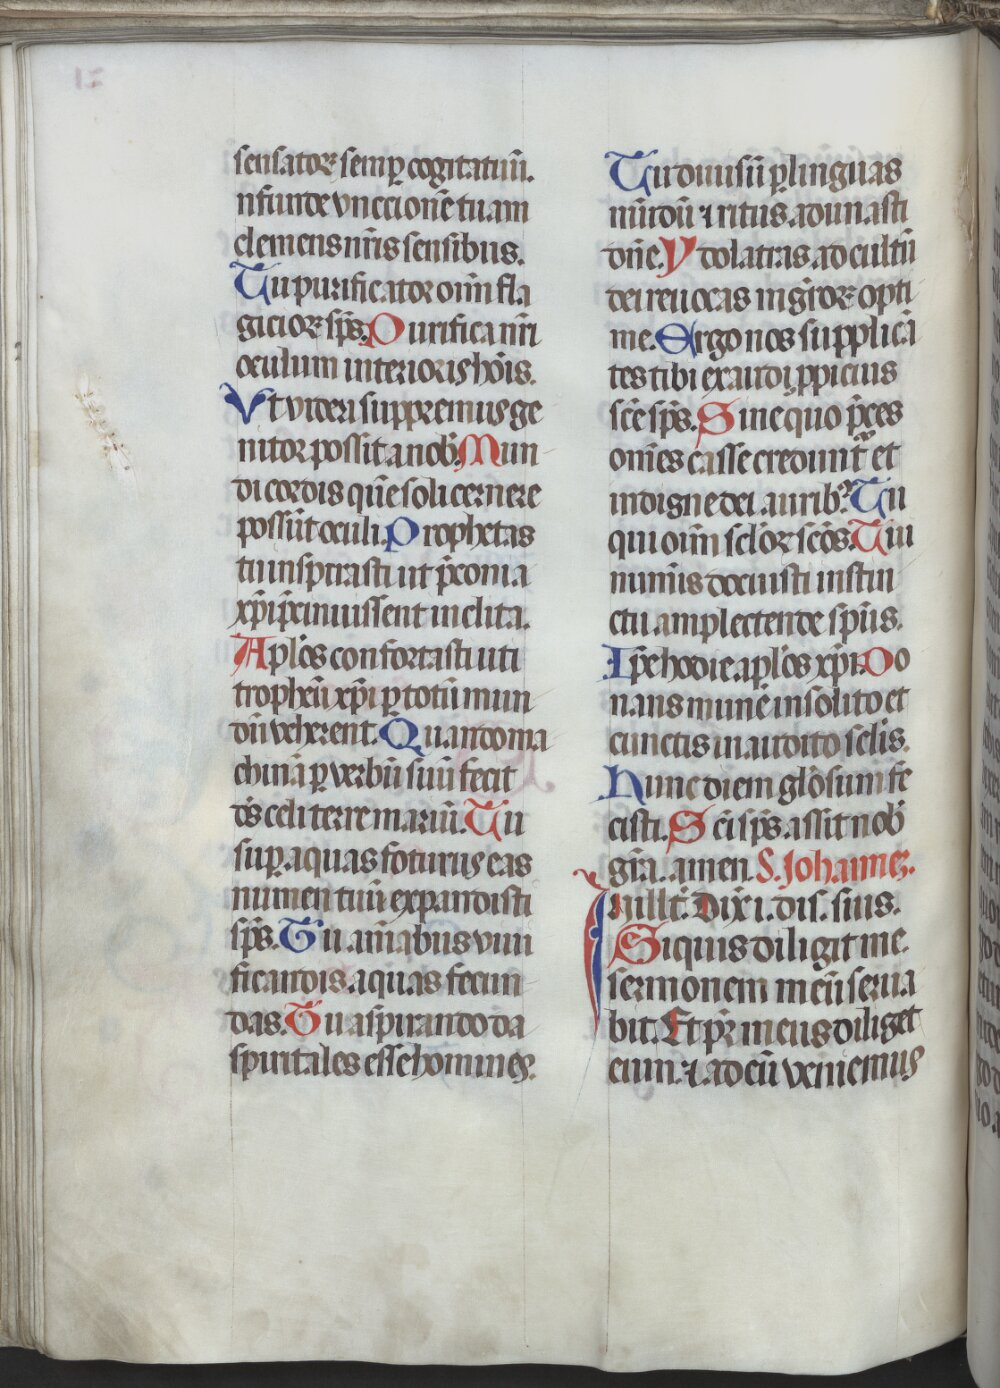 sensatoꝝ semꝑ cogitatuū.
nfunde vnccionē tuam
clemens nr̄is sensibus.
Tu purificator oīm fla
gicioꝝ sp̄s. Purifica nr̄i
oculum interioris hoīs.
Vt videri suppremus ge
nitor possit a nob̄. Mun
di cordis quē soli cernere
possūt oculi. Prophetas
tu inspirasti ut p̄conia
xp̄i p̄cinuissent inclita.
Apl̄os confortasti uti
tropheū xp̄i ꝑ totū mun
dū veherent. Quando ma
chinā ꝑ verbū suū fecit
ds̄ celi terre mariū. Tu
suꝑ aquas foturus eas
numen tuū expandisti
sp̄s. Tu aīabus viui
ficandis aquas fecun
das. Tu aspirando da
spiritales esse homines.
Tu diuisū ꝑ linguas
mūdū ⁊ ritus adunasti
dn̄e. Ydolatras ad cultū
dei reuocas mgr̄oꝝ opti
me. Ergo nos supplicā
tes tibi exaudi ꝓpicius
sc̄e sp̄s. Sine quo p̄ces
om̄es casse creduntᷣ et
indigne dei aurib᷒. Tu
qui oīm sclōꝝ sc̄os. Tui
numīs docuisti instin
ctu amplectende sp̄us.
Ip̄e hodie apl̄os xp̄i. Do
nans munē insolito et
cunctis inaudito sclis.
Hunc diem glōsum fe
cisti. S Sc̄i sp̄s assit nob̄
gr̄a. amen. S. Johannez.
In illt̄. Dix̄ i. dis. suis.
Si quis diligit me.
sermonem meū serua
bit. Et pr̄ meus diliget
eum. ⁊ ad eū veniemus